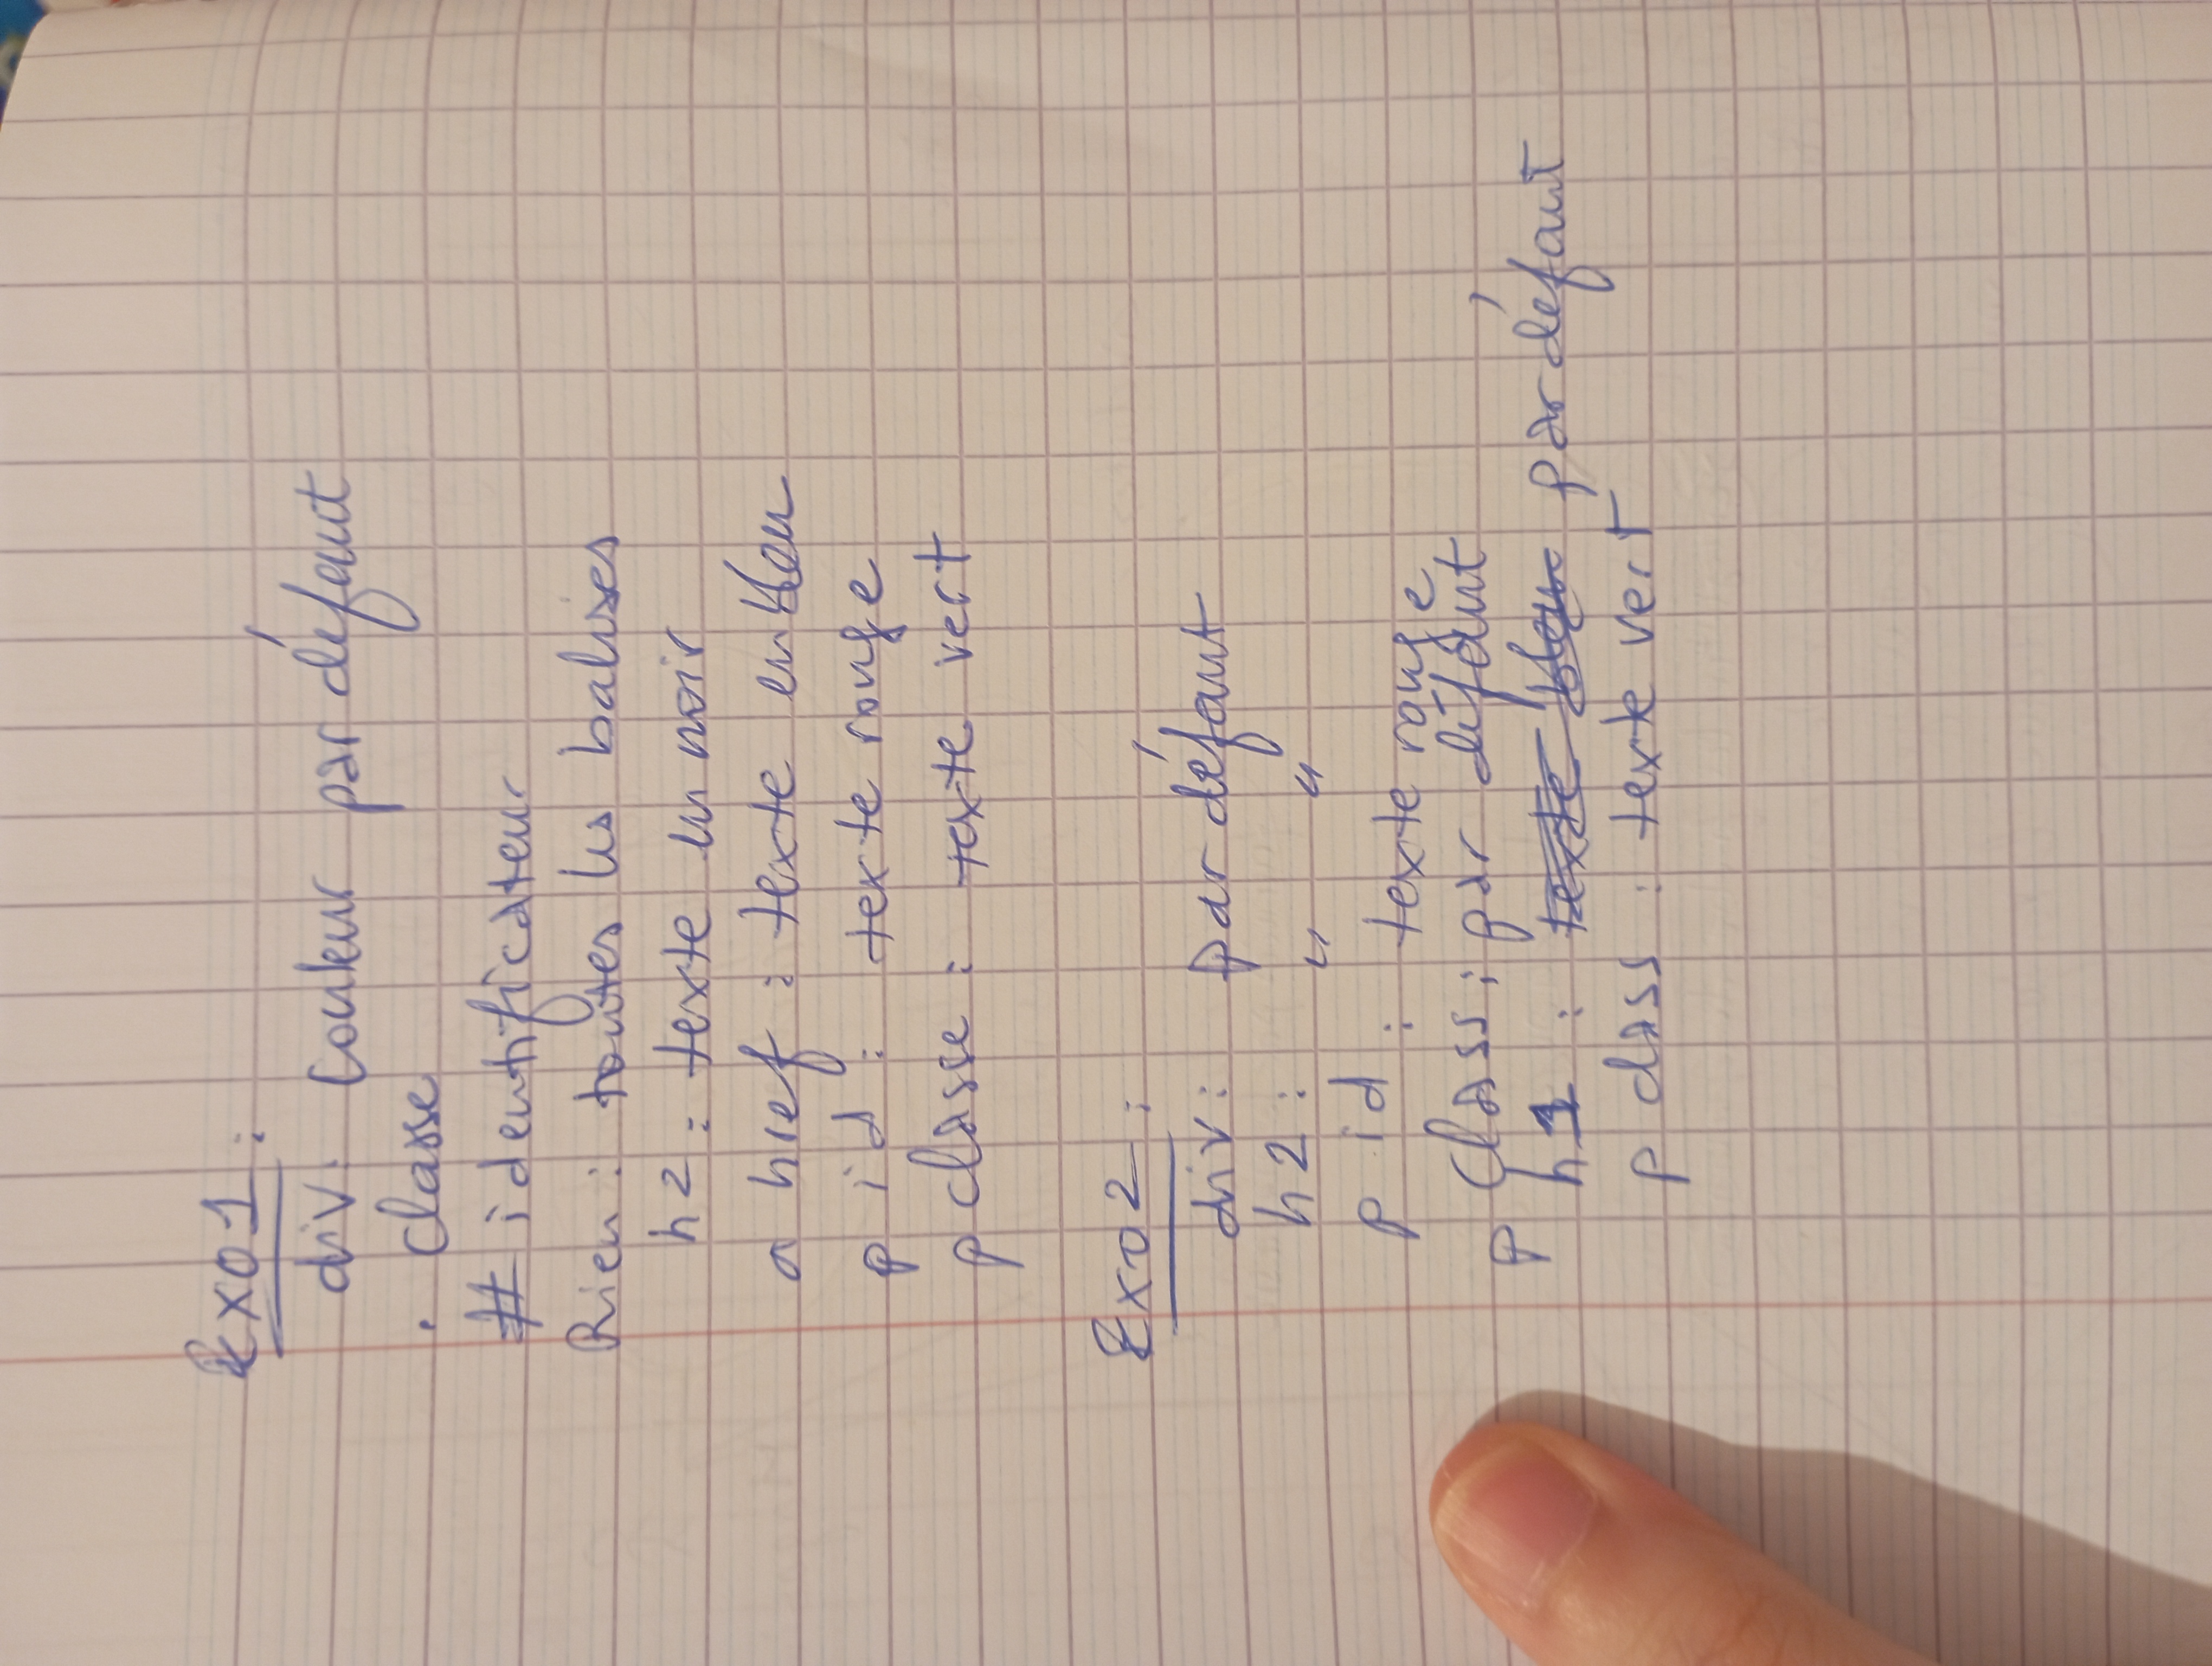 Exo 1 :
div : Couleur par défaut
. classe
# identificateur
Rien : toutes les balises
h2 : texte en noir
a href : texte en bleu
p id : texte rouge
p classe : texte vert
Exo 2 :
div : par défaut
h2 : " "
p id : texte rouge
p class : par défaut
h1 : texte bleu par défaut
p class : texte vert